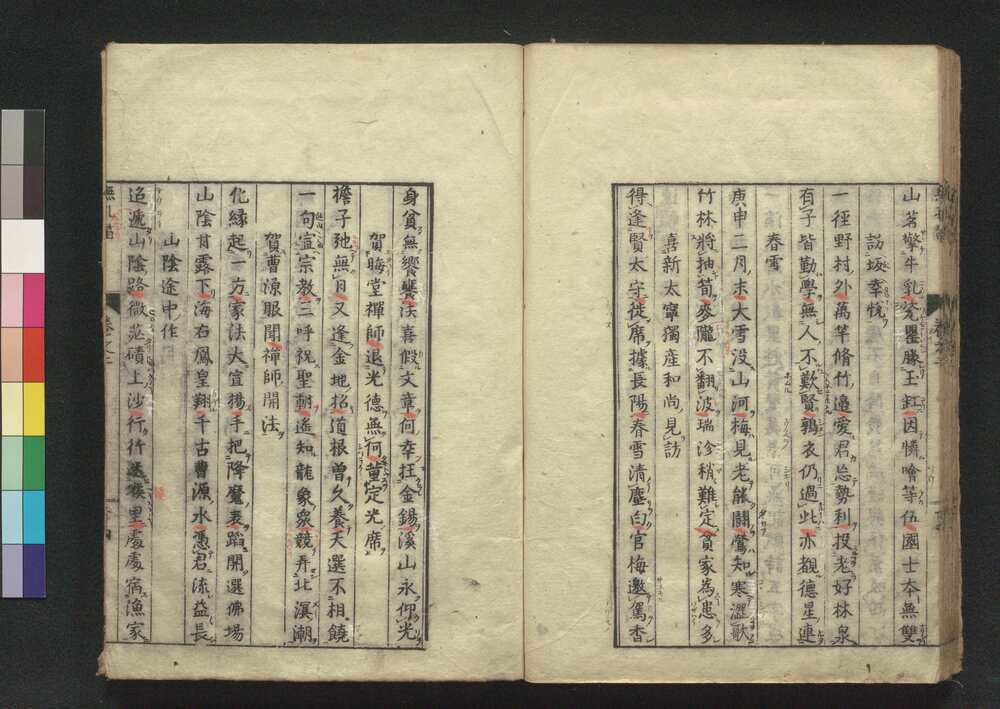 山茗擎牛乳瓷甖勝玉缸因憐噲等伍國士本無雙
訪坂幸悅
一徑野村外萬竿脩竹邊愛君忘勢利投老好林泉
有子皆勤學無人不歎賢鶉衣仍過此亦覩德星連
春雪
庚申二月末大雪没山河梅見老能鬪鶯知寒澀歌
竹林將抽筍麥隴不翻波瑞沴稍難定貧家為患多
喜新太寧獨産和尚見訪
得逢賢太守徙席據長陽春雪清塵白官梅邀駕香
身貧無饗餼法喜假文章何幸枉金錫溪山永仰光
賀晦堂禪師退光德無何董定光席
擔子弛無自又逢金地招道根曾久養天選不相饒
一句宣宗教三呼祝聖朝遙知龍象衆競弄北溟潮
賀曹源眼聞禪師開法
化縁起一方家法大宣揚手把降魔表蹈開選佛場
山陰甘露下海右鳳皇翔千古曹源水憑君流益長
山陰途中作
迢遞山陰路微茫磧上沙行行里處處宿漁家